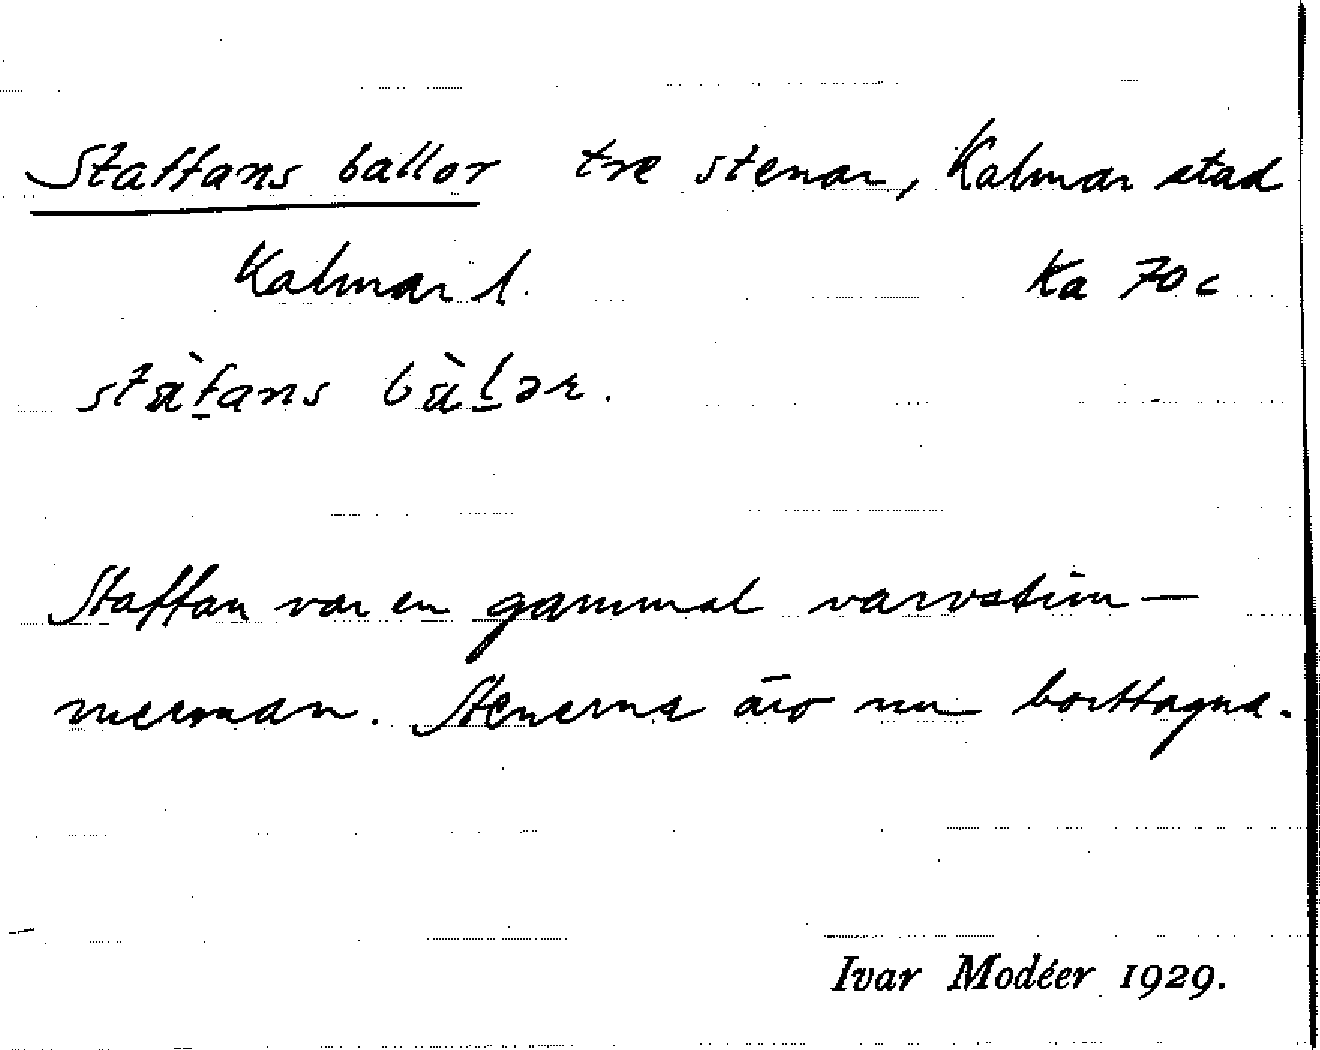 Staffans ballor tre stenar, Kalmar stad
Kalmar l. Ka 70c
stàf̱ans bàḻər.
Staffan var en gammal varvstim-
merman. Stenerna äro nu borttagna.
Ivar Modéer 1929.